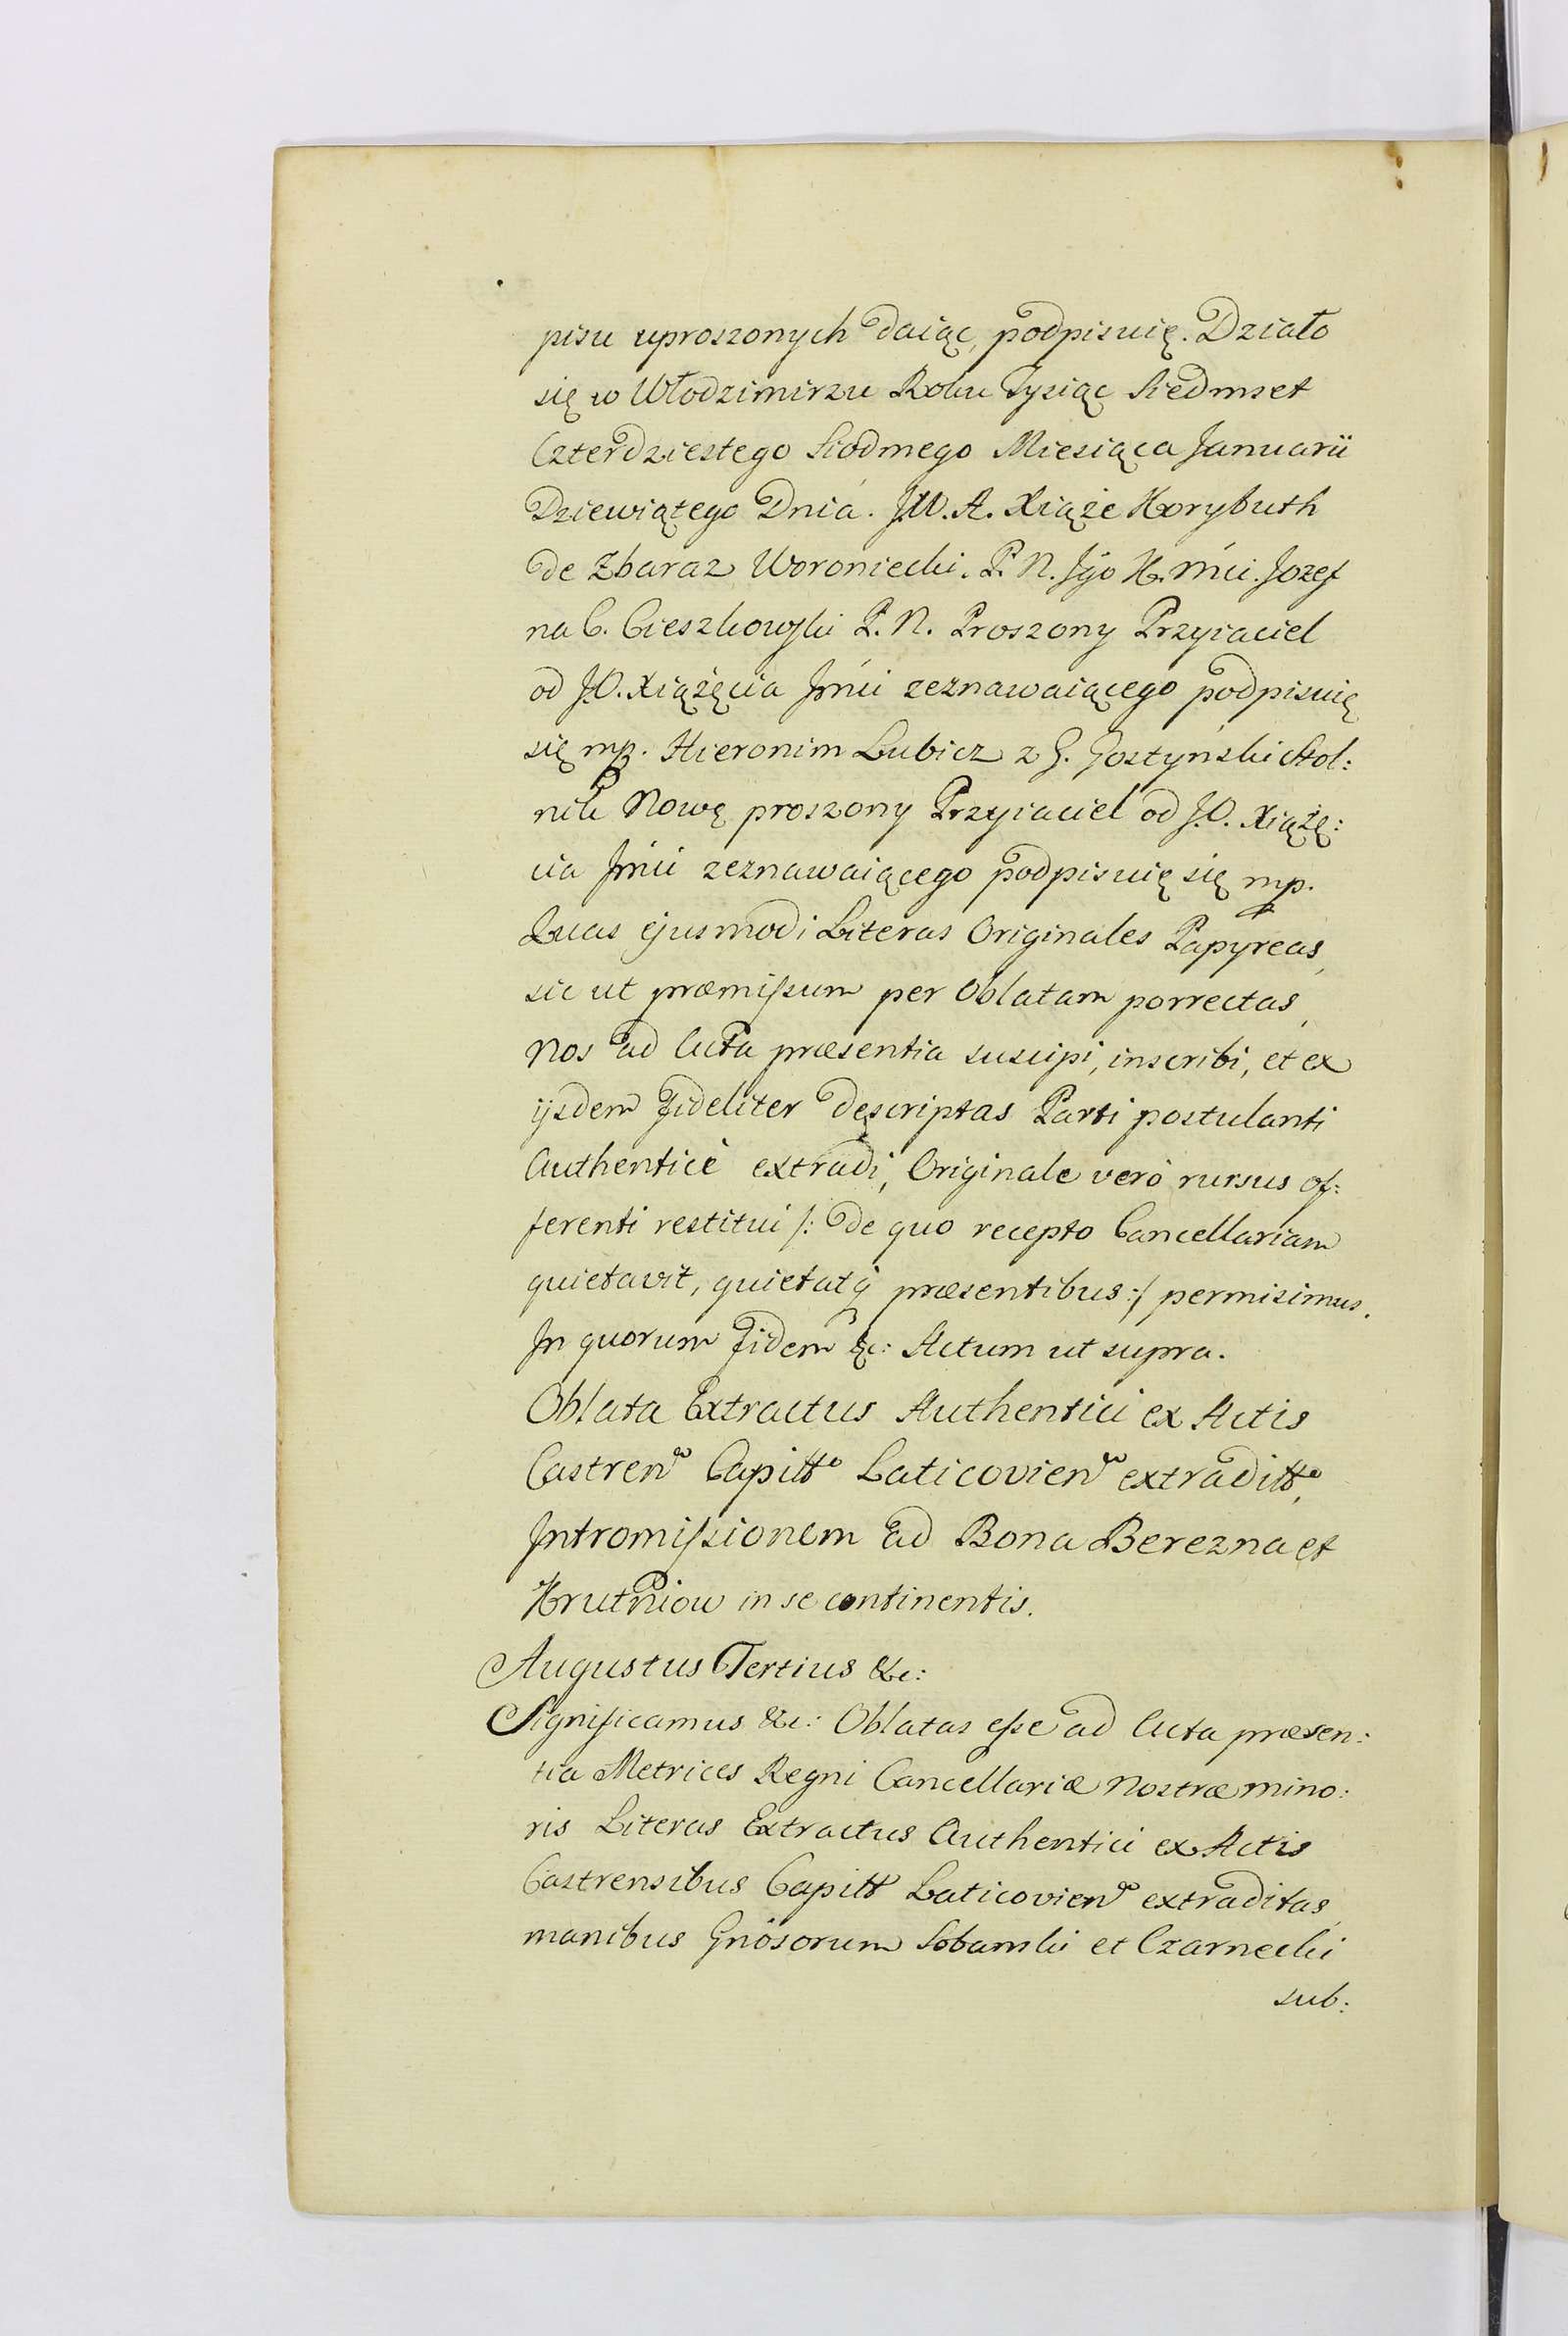 pisu uproszonych daiąc, podpisuię. Działo
się w Włodzimirzu Roku Tysiąc Siedmset
Czterdziestego Siodmego Miesiąca Januarii
Dziewiątego Dnia. J.W.A. Xiąże Korybuth
de Zbaraz Woroniecki. P. N. Jgo K. Mci. Jozef
na C. Cieszkowski P. N. Proszony Przyiaciel
od J.O. Xiążęcia Jmći zeznawaiącego podpisuię
się mp. Hieronim Lubicz z G. Gostyński Stol:
nik Nowę proszony Przyiaciel od J.O. Xiążę:
cia Jmći zeznawaiącego podpisuię się mp.
Quas ejusmodi Literas Originales Papyreas,
sic ut præmissum per Oblatam porrectas,
Nos ad Acta præsentia suscipi, inscribi, et ex
ijsdem fideliter descriptas Parti postulanti
Authenticè extradi, Originale verò rursus of:
ferenti restitui /: de quo recepto Cancellariam
quietavit, quietatq præsentibus :/ permisimus.
In quorum Fidem &c: Actum ut supra.
Oblata Extractus Authentici ex Actis
Castren. Capitt. Laticovien. extraditt.,
Intromissionem ad Bona Berezna et
Krutniow in se continentis.
Augustus Tertius &c:
Significamus &c: Oblatas esse ad Acta præsen:
tia Metrices Regni Cancellariæ Nostræ mino:
ris Literas Extractus Authentici ex Actis
Castrensibus Capitt Laticovien. extraditas,
manibus Gnosorum Sobanski et Czarnecki
sub: